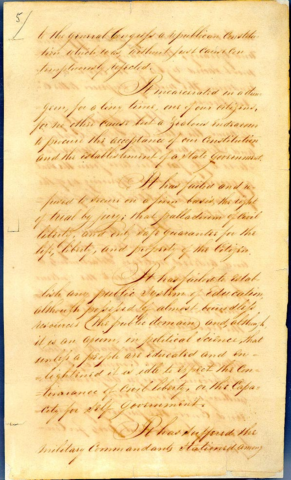 5/
to the general Congress a republican Constitu-
tion which was, without just cause, con-
temptuously rejected.
It incarcerated in a dun-
geon, for a long time, one of our citizens,
for no other cause but a zealous endeavor
to procure the acceptance of our Constitution
and the establishment of a State Government.
It has failed and re-
fused to secure on a firm basis, the right
of trial by jury, that palladium of civil
liberty, and only safe guarantee for the
life, liberty, and property of the Citizen.
It has failed to estab-
lish any public system of education,
although possessed of almost boundless
resources (the public domain) and, although,
it is an axiom, in political science, that
unless a people are educated and en-
lightened it is idle to expect the con-
tinuance of civil liberty, or the capa-
city for self government.
It has suffered the
military commandants stationed among